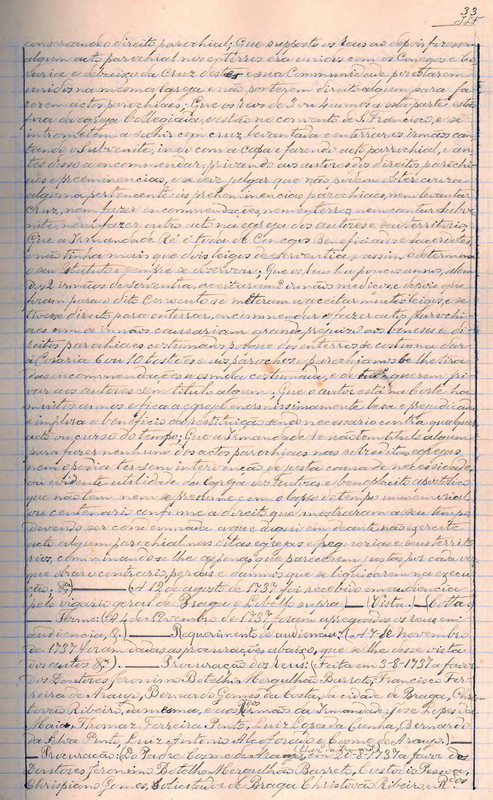 33
conservando o direito parochial; Que supposto os Reus ao depois fizeram
algum acto parochial nos enterros era unidos com os Conegos e
e debaixo da Cruz destes e sua Communidade por estarem
unidos na mesma Igreja e não por terem direito algum para fa
zerem actos parochiaes; Que os Reus de 3 ou 4 annos a esta parte estão
fora da egreja Collegiada, e estão no convento de S. Francisco, e se
intromettem a sahir com cruz levantada e enterrar os irmãos can
tando o Subvenite, indo com a capa e fazendo acto parochial, e an
tes disso a encommendar, privando aos autores dos direitos parochi
aes e preeminencias, e se deve julgar que não podem exercitar acção
alguma pertencente ás prehiminencias parochiaes, nem levantar
Cruz, nem fazer encommendações, nem enterros, nem cantar Subve
nite, nem fazer outro acto na egreja dos autores e seu territorio;
Que a Irmandade Ré é só de Conegos Beneficiados e Sacerdotes,
não tinha mais que dois leigos de serventia, e assim o determina
o seu Estatuto e sempre se observou; Que os Reus ha poucos annos, alem
dos 2 irmãos de serventia, aceitaram 2 irmãos medicos, e depois que
foram para o dito Convento se metteram a aceitar muitos leigos, e se
tivesse direito para enterrar, encommendar e fazer actos parochi
aes com os irmãos causariam grande prejuizo aos benesses e di
reitos parochiaes costumados, porque dos enterros de costume dar
á Cesaria 6 ou 10 tostões e aos párochos e parochianos be lhe tira
das encommendações a esmola costumada, e de tudo querem pri
var aos autores sem titulo algum; Que o autor está na posse ha
muitos annos e fica a egreja enormissimamente lesa e prejudicada
e implora o beneficio da restituição sendo necessario contra qualquer
acto ou curso do tempo; Que a Irmandade Ré não tem titulo algum
para fazer nenhum dos actos parochiaes nas sobreditas egrejas
nem o podia ter sem intervenção de justa causa de necessidade,
ou evidente utilidade da Egreja dos autores e beneplacito apostolico
que não tem, nem se presume com o lapso do tempo immemorial
ou centenario conforme a direito, que mostraram a seu tempo
devendo ser condemnada a que daqui em deante não exercite
acto algum parochial nas ditas egrejas e freguesias e seus territo
rios, comminando-se-lhe as penas que parecerem justas por cada vez
que obrar o contrario, perdas e damnos que se liquidarem na execu
ção; &.) — (A 12 de agosto de 1737 foi recebido em audiencia
pelo vigario geral de Braga o Libello supra) — (Vista:
— Termo: (A 4 de Novembro de 1737 foram apregoados os reus em
audiencia, &.) — Requerimento de audiencia: (A 7 de Novembro
de 1737 foram dadas as procurações abaixo, que se lhe desse vista
dos autos &.) — Procuração dos reus: (Feita em 3-8-1737 a favor
dos Doutores Jeronimo Botelho Mergulhão Barreto, Francisco Fer
reira de Araujo, Bernardo Gomes da Costa, da cidade de Braga, Chris
tovão Ribeiro, da mesma, e aos Irmãos da Irmandade: José Lopes da
Maia, Thomaz Ferreira Pinto, Luiz Lopes da Cunha, Bernardo
da Silva Pinto, Luiz Antonio Alcoforado e Cosme de Araujo.) —
— Procuração: (Do Padre Cosme de Araujo, em 20-8-1737 a favor dos
Doutores Jeronimo Botelho Mergulhão Barreto, Custodio Pessoa,
Christiano Gomes, e de Braga Christovão Ribeiro, e